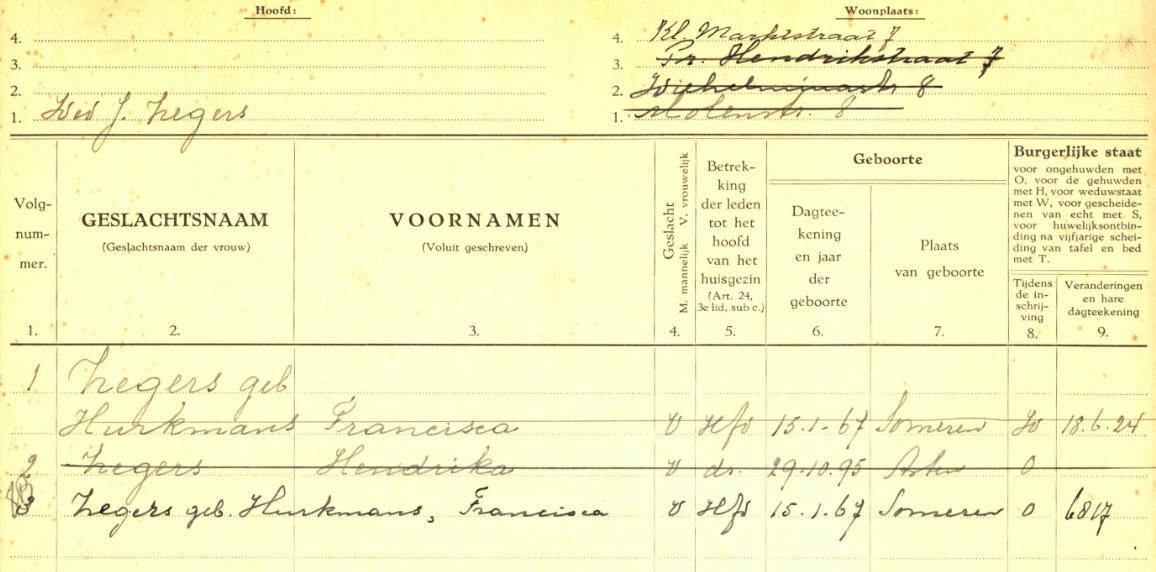 Hoofd: Woonplaats:
4. 4. Kl. Marktstraat 7
3. 3. Pr. Hendrikstraat 7
2. 2. Wilhelminastr 8
1. Wed J. Zegers 1. Molenstr. 8
Volg-
num-
mer.
1.
GESLACHTSNAAM
(Geslachtsnaam der vrouw)
2.
VOORNAMEN
(Voluit geschreven)
3.
Geslacht
M. mannelijk V. vrouwelijk
4.
Betrek-
king
der leden
tot het
hoofd
van het
huisgezin
(Art. 24,
3e lid, sub c.)
5.
Geboorte
Dagtee-
kening
en jaar
der
geboorte
6.
Plaats
van geboorte
7.
Burgerlijke staat
voor ongehuwden met
O, voor de gehuwden
met H, voor weduwstaat
met W, voor gescheide-
nen van echt met S,
voor huwelijksontbin-
ding na vijfjarige schei-
ding van tafel en bed
met T.
Tijdens
de in-
schrij-
ving
8.
Veranderingen
en hare
dagteekening
9.
1 Zegers geb
Hurkmans Francisca V Hfd 15.1.67 Someren 18.6.24
2 Zegers Hendrika V dr. 29.10.95 Asten O
3 Zegers geb. Hurkmans, Francisca V Hfd 15.1.67 Someren O 6817